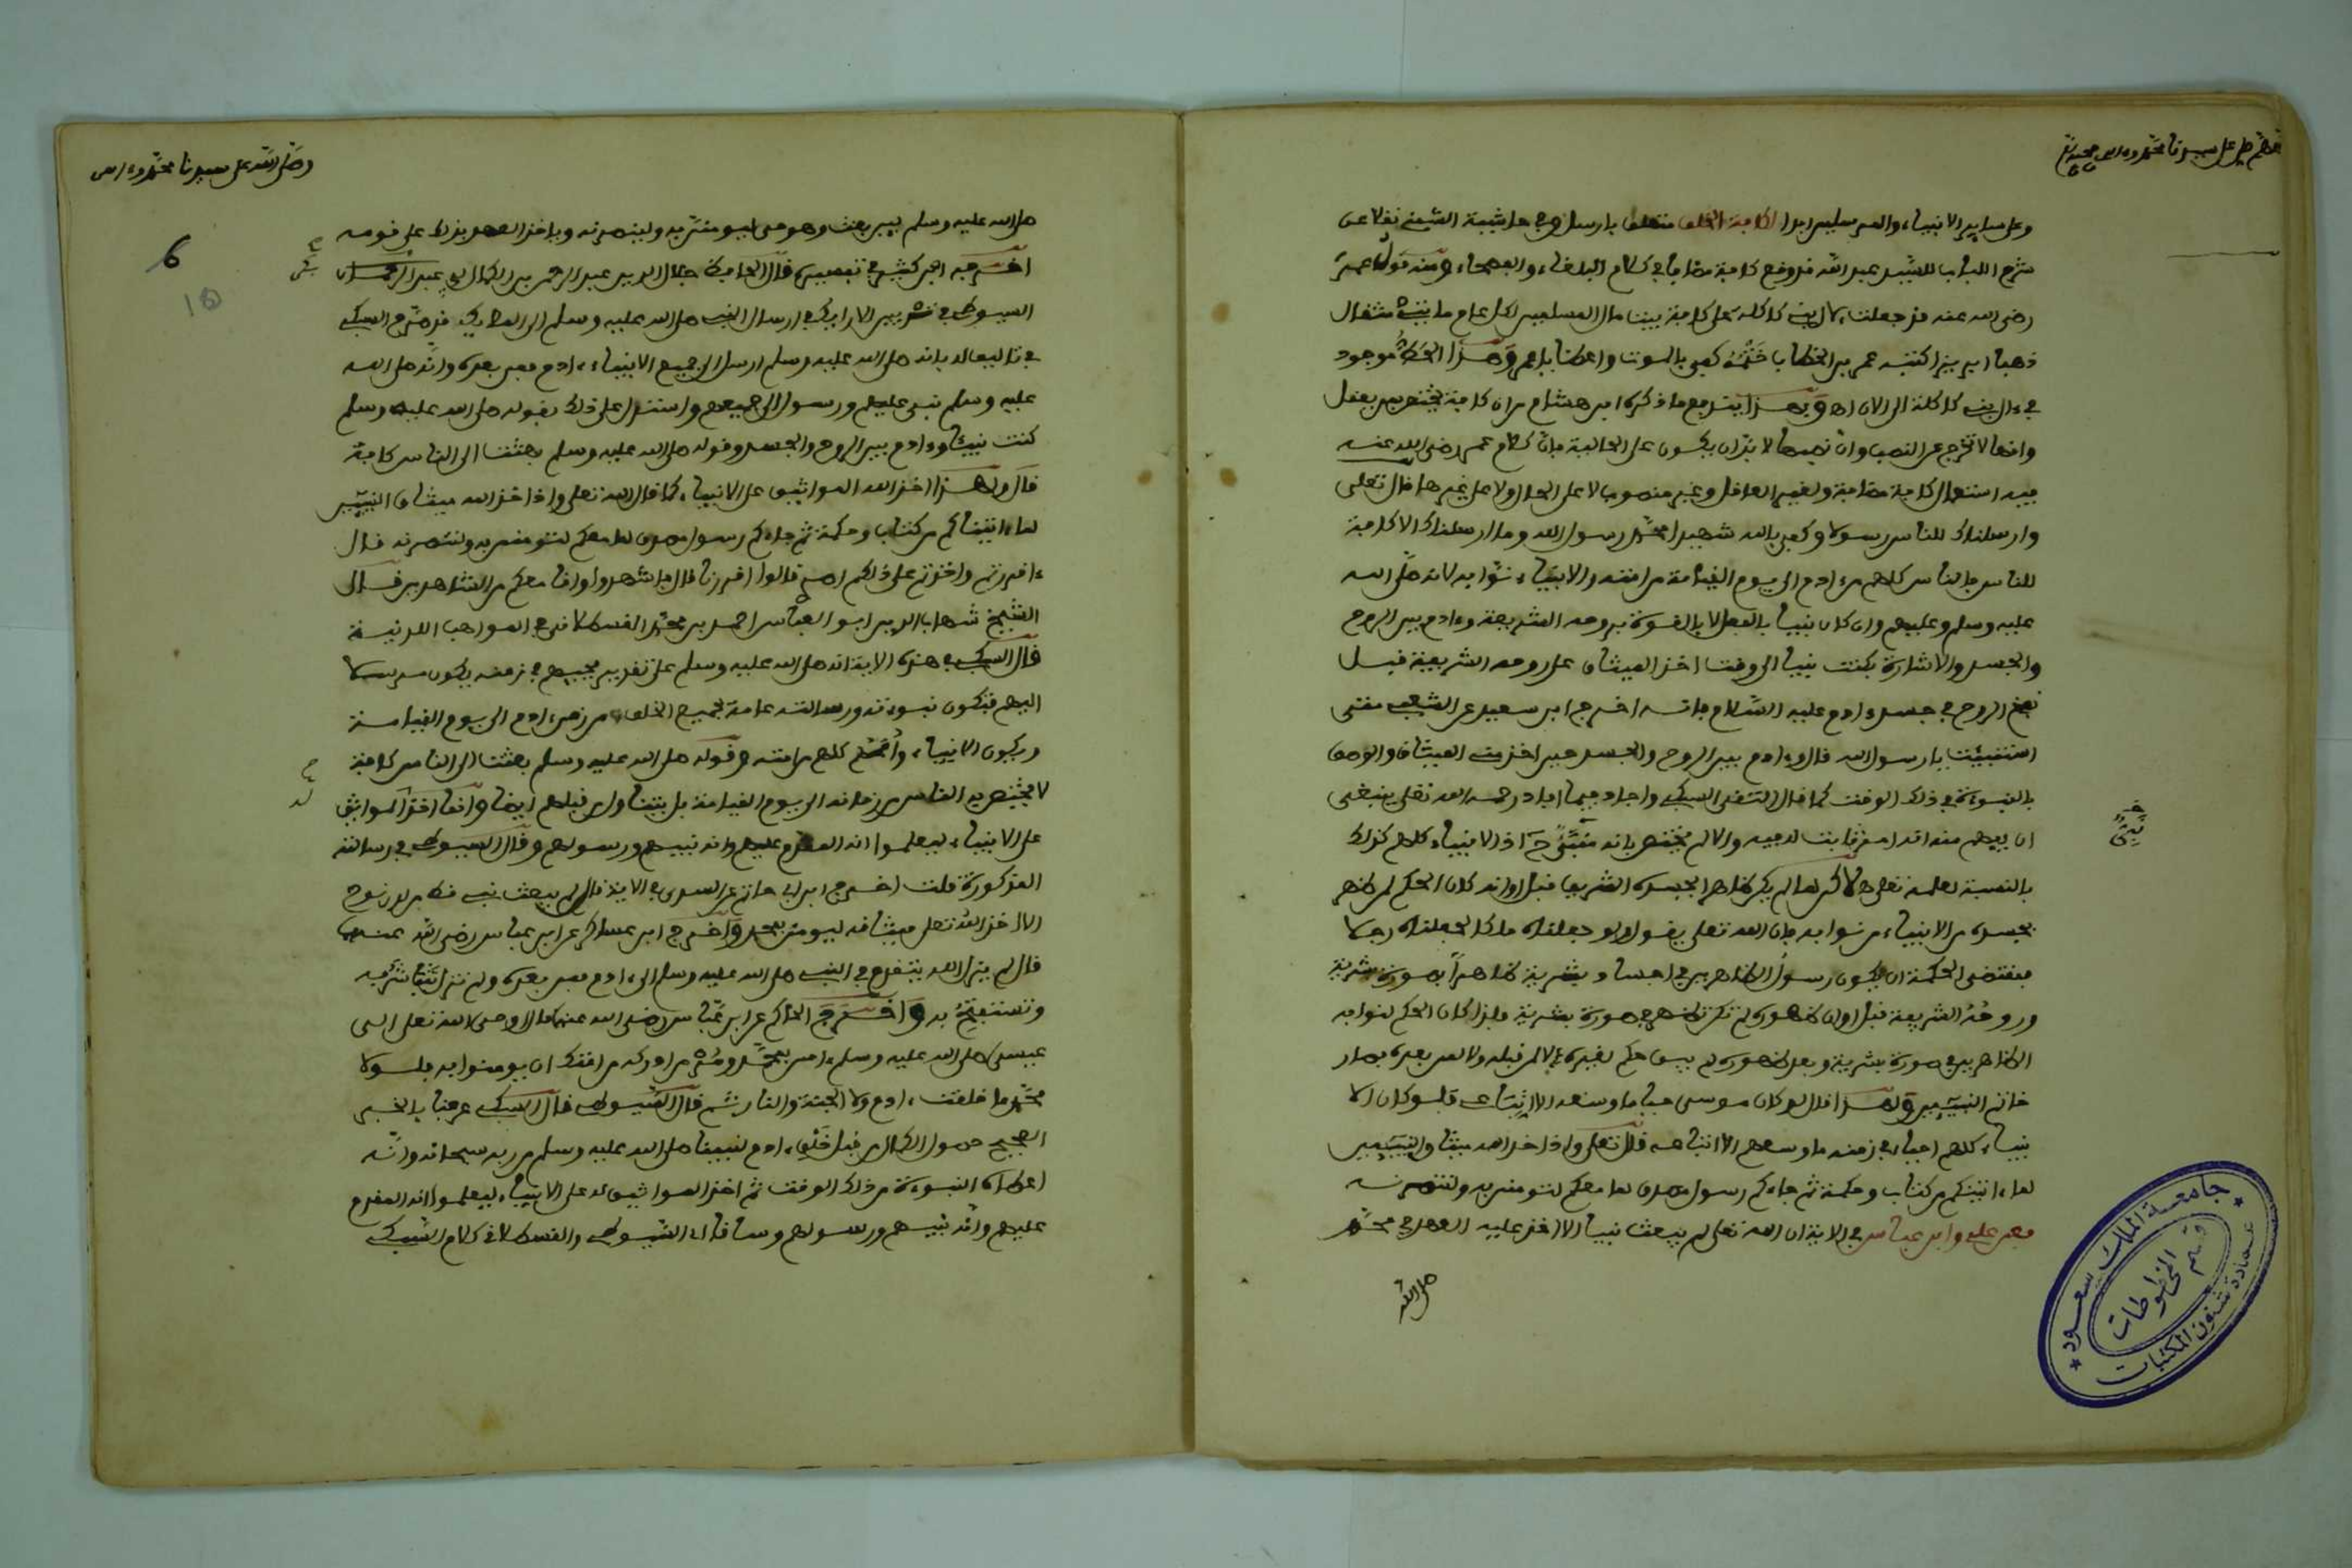 اللهم صل على سيدنا محمد وءاله وصحبه
وعلى ساير الانبياء والمرسلين ابدا لكافة الخلق متعلق بارسل وفي حاشية الشيخ نقلا عن
شرح اللباب للسيد عبد الله قد وقع كافة مضافا في كلام البلغاء والفصحاء ومنه قول عمر
رضي الله عنه قد جعلت لآل بني كاكلة على كافة بيت مال المسلمين لكل عام مايتي مثقال
ذهبا ابريزا كتبه عمر بن الخطاب ختمه كفى بالموت واعظا يا عمر وهذا الخط موجود
في ءال بني كاكلة الى الان اه وبهذا يندفع ما ذكره ابن هشام من ان كافة يختص بمن يعقل
وانها لا تخرج عن النصب وان نصبها لا بد ان يكون على الحالية فان كلام عمر رضي الله عنه
فيه استعمال كافة مضافة ولغير العاقل وغير منصوب لا على الحال ولا على غيرها قال تعلى
وارسلناك للناس رسولا وكفى بالله شهيدا محمد رسول الله وما ارسلناك الا كافة
للناس فالناس كلهم من ءادم الى يوم القيامة من امته والانبياء نوابه لانه صلى الله
عليه وسلم وعليهم وان كان نبيا بالفعل لا بالقوة بروحه الشريفة وءادم بين الروح
والجسد والاشارة بكنت نبيا الى وقت اخذ الميثاق على روحه الشريفة قبل
نفخ الروح في جسد ءادم عليه السلام فانه اخرج ابن سعيد عن الشعبي متى
استنبئت يا رسول الله قال وءادم بين الروح والجسد حين اخذ مني الميثاق والوصف
بالنبوءة في ذلك الوقت كما قال التقي السبكي واجاد فيما افاد رحمه الله تعلى ينبغي
ان يفهم منه انه امر ثابت له فيه والا لم يختص بانه نبي ح اذ الانبياء كلهم كذلك
بالنسبة لعلمه تعلى لاكن لما لم يكن ظاهر الجسد الشريف قبل اوانه كان الحكم لمن ظهر
بجسده من الانبياء من نوابه فان الله تعلى يقول ولو جعلناه ملكا لجعلناه رجلا
فمقتضى الحكمة ان يكون رسول الظاهرين في اجساد بشرية ظاهرا بصورة بشرية
وروحه الشريفة قبل اوان ظهوره لم تكن تظهر في صورة بشرية فلذا كان الحكم لنوابه
الظاهرين في صورة بشرية وبعد ظهوره لم يبق حكم لغيره لا لمن قبله ولا لمن بعده فصار
خاتم النبيئين ولهذا قال لو كان موسى حيا ما وسعه الا اتباعي فلو كان الا
نبياء كلهم احياء في زمنه ما وسعهم الا اتباعه قال تعلى واذ اخذ الله ميثاق النبيئين
لما ءاتيتكم من كتاب وحكمة ثم جاءكم رسول مصدق لما معكم لتومنن به ولتنصرنه
فعن علي وابن عباس في الاية ان الله تعلى لم يبعث نبيا الا اخذ عليه العهد في محمد
صلى الله
وصلى الله على سيدنا محمد وءاله
6
صلى الله عليه وسلم لين بعث وهو حي ليومنن به ولينصرنه وياخذ العهد بذلك على قومه
اخرجه ابن كثير في تفسيره قال الحافظ جلال الدين عبد الرحمن بن الكمال ابي عبد الرحمان
السيوطي في تزيين الارايك في ارسال النبي صلى الله عليه وسلم الى الملايك قد صرح السبكي
في تاليف له بانه صلى الله عليه وسلم ارسل الى جميع الانبياء ءادم فمن بعده وانه صلى الله
عليه وسلم نبي عليهم ورسول الى جميعهم واستدل على ذلك بقوله صلى الله عليه وسلم
كنت نبيئا وءادم بين الروح والجسد وقوله صلى الله عليه وسلم بعثت الى الناس كافة
قال ولهذا اخذ الله المواثيق على الانبياء كما قال الله تعلى واذ اخذ الله ميثاق النبيئين
لما ءاتيناكم من كتاب وحكمة ثم جاءكم رسول مصدق لما معكم لتومنن به ولتنصرنه قال
ءاقررتم واخذتم على ذلكم اصري قالوا اقررنا قال فاشهدوا وانا معكم من الشاهدين قال
الشيخ شهاب الدين ابو العباس احمد بن محمد القسطلاني في المواهب اللدنية
قال السبكي في هذه الاية انه صلى الله عليه وسلم على تقدير مجيئهم في زمنه يكون مرسلا
اليهم فتكون نبوءته ورسالته عامة لجميع الخلق من زمن ءادم الى يوم القيامة
ويكون الانبياء واممهم كلهم من امته وقوله صلى الله عليه وسلم بعثت الى الناس كافة
لا يختص به الناس من زمانه الى يوم القيامة بل يتناول من قبلهم ايضا وانما اخذ المواثق
على الانبياء ليعلموا انه المقدم عليهم وانه نبيهم ورسولهم وقال السيوطي في رسالته
المذكورة قلت اخرج ابن ابي حاتم عن السدي في الاية قال لم يبعث نبي قط من لدن نوح
الا اخذ الله تعلى ميثاقه ليومنن بمحمد واخرج ابن عساكر عن ابن عباس رضي الله عنهما
قال لم يزل الله يتقدم في النبي صلى الله عليه وسلم الى ءادم فمن بعده ولم تزل
وتستفتح به واخرج الحاكم عن ابن عباس رضي الله عنهما قال اوحى الله تعلى الى
عيسى صلى الله عليه وسلم ءامن بمحمد ومر من ادركه من امتك ان يومنوا به فلولا
محمد ما خلقت ءادم ولا الجنة والنار ثم قال السيوطي قال السبكي عرفنا بالخبر
الصحيح حصول الكمال من قبل خلق ءادم لنبينا صلى الله عليه وسلم من ربه سبحانه وانه
اعطاه النبوءة من ذلك الوقت ثم اخذ المواثيق له على الانبياء ليعلموا انه المقدم
عليهم وانه نبيهم ورسولهم وساقا اي السيوطي والقسطلاني كلام السبكي
جامعة الملك سعود
عمادة شئون المكتبات
قسم المخطوطات